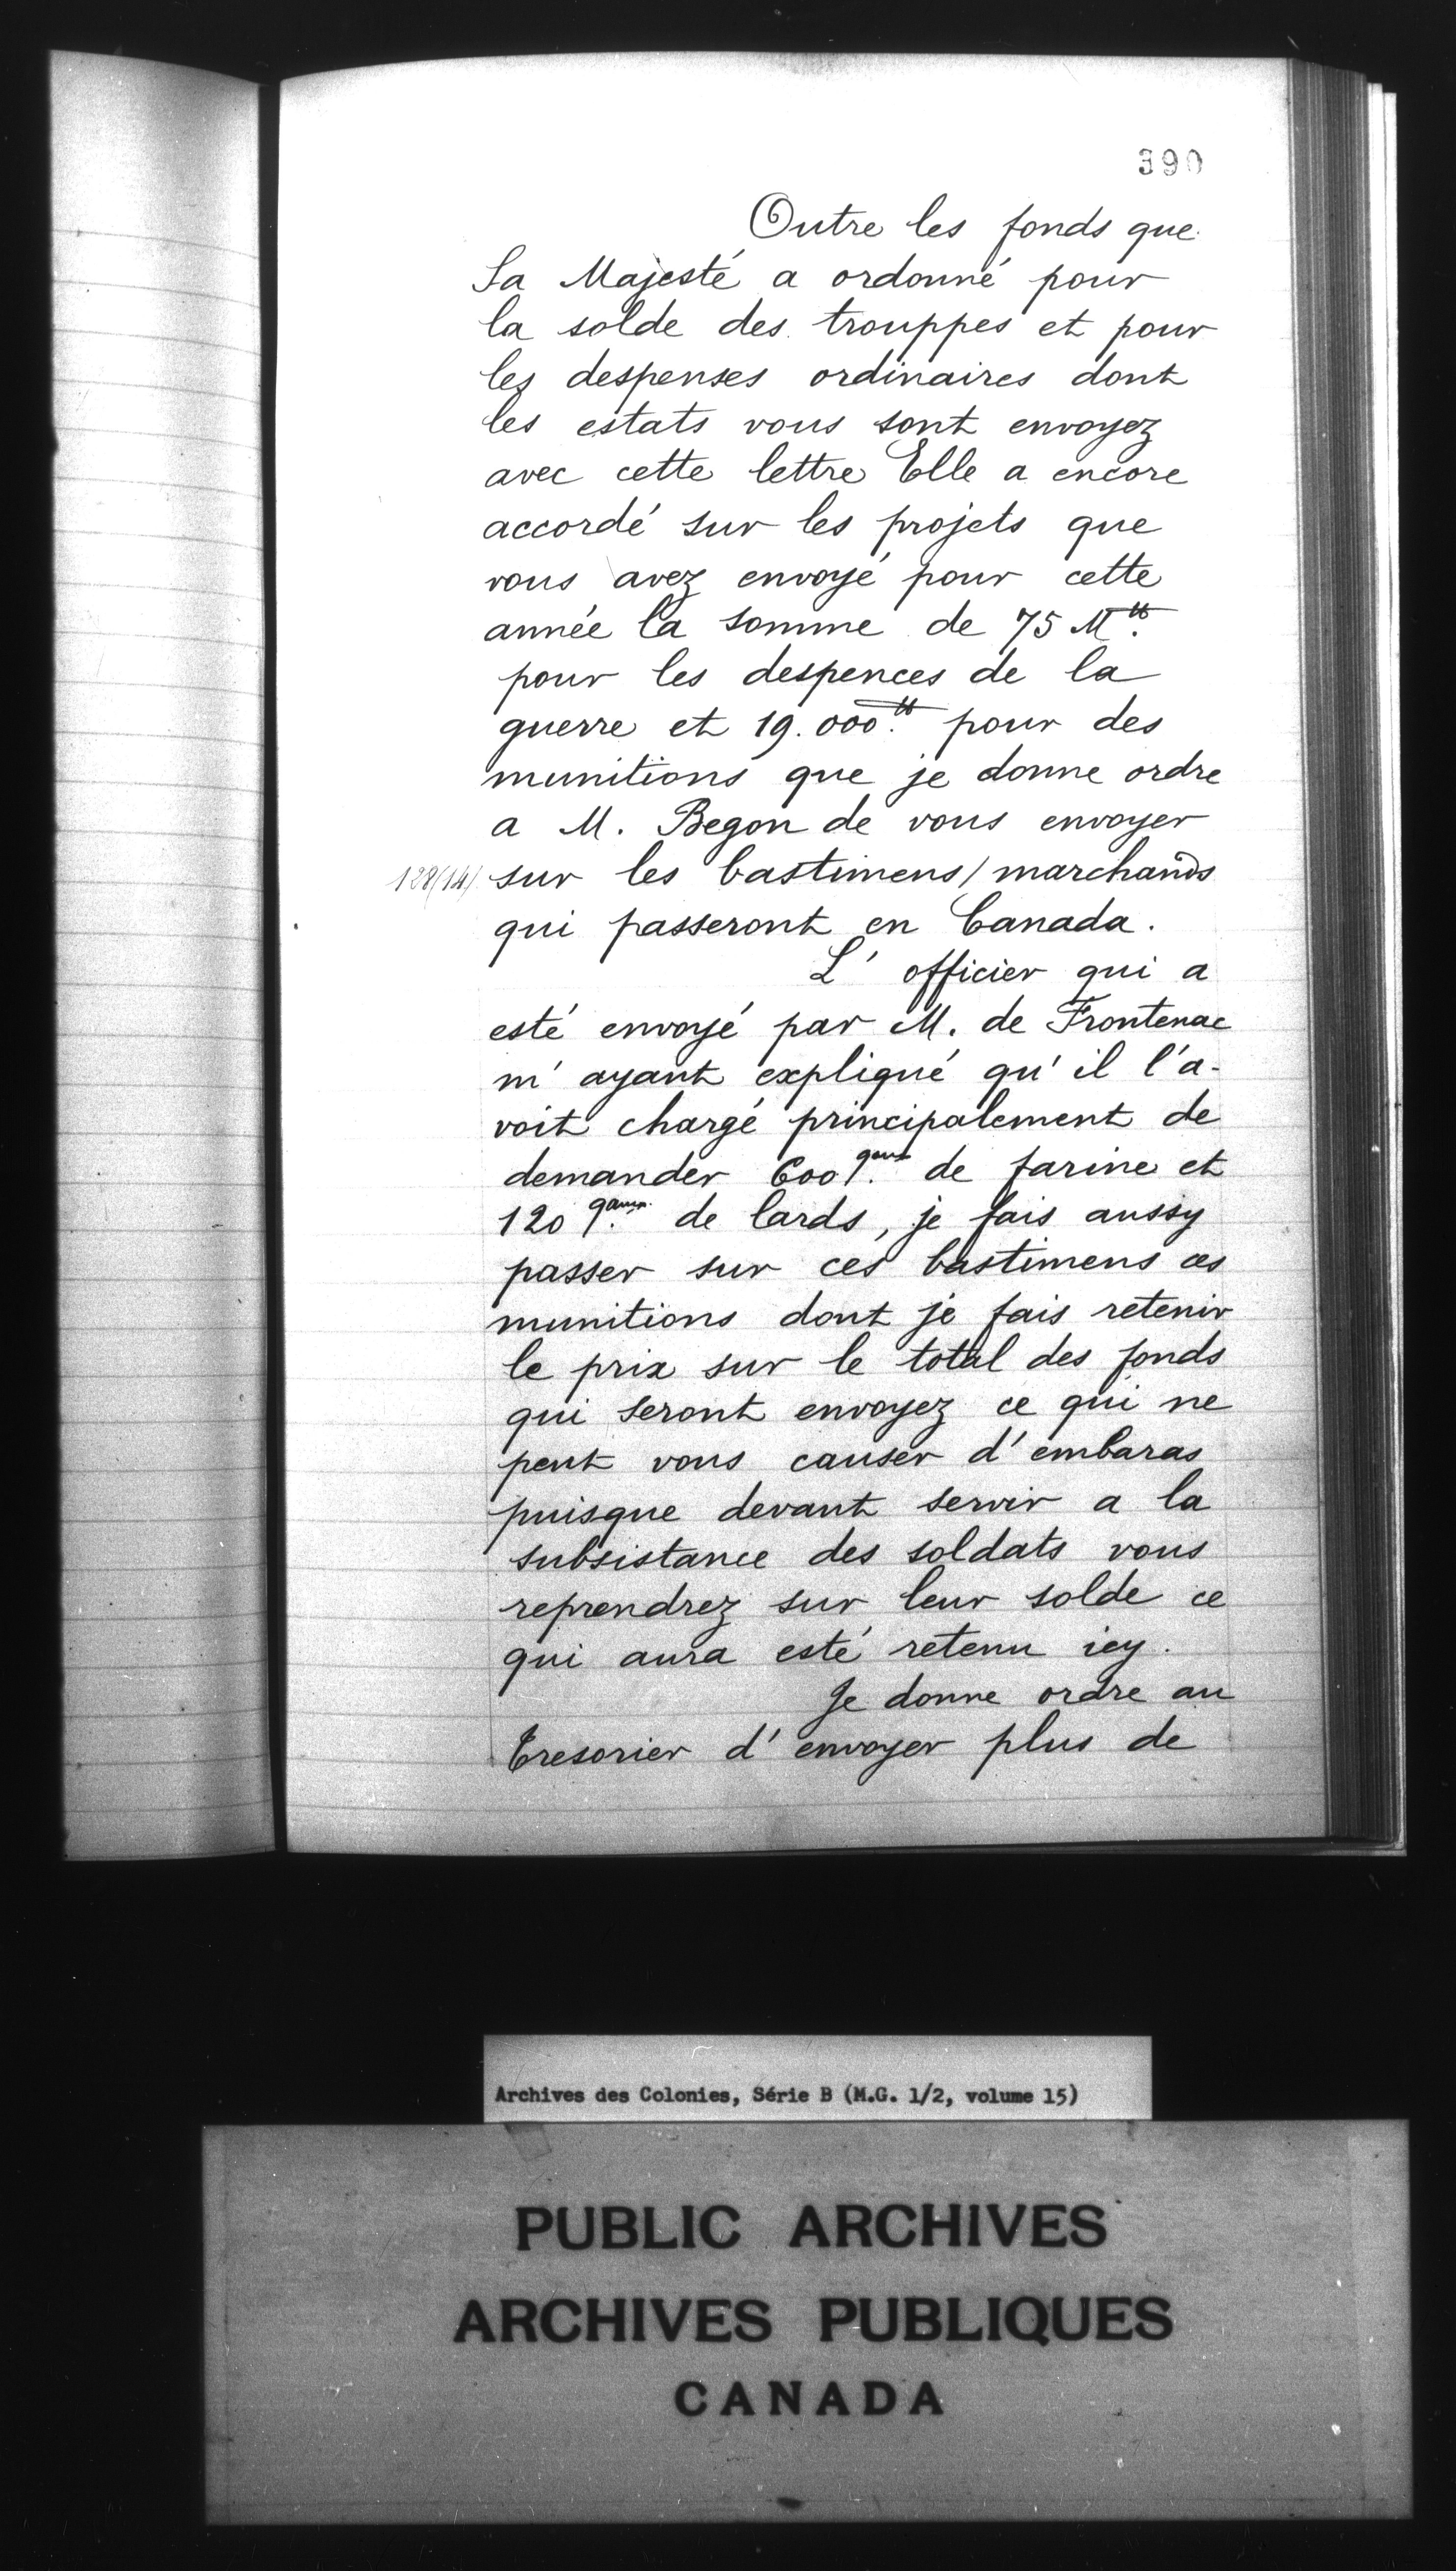 390
Outre les fonds que
Sa Majesté a ordonné pour
la solde des trouppes et pour
les despenses ordinaires dont
les estats vous sont envoyez
avec cette lettre Elle a encore
accordé sur les projets que
vous avez envoyé pour cette
année la somme de 75 M ₶.
pour les despences de la
guerre et 19.000 ₶. pour des
munitions que je donne ordre
a M. Begon de vous envoyer
128(14) sur les bastimens / marchands
qui passeront en Canada.
L' officier qui a
esté envoyé par M. de Frontenac
m' ayant expliqué qu' il l'a-
voit chargé principalement de
demander 600 q. de farine et
120 q. de lards, je fais aussy
passer sur ces bastimens ces
munitions dont je fais retenir
le prix sur le total des fonds
qui seront envoyez ce qui ne
peut vous causer d' embaras
puisque devant servir a la
subsistance des soldats vous
reprendrez sur leur solde ce
qui aura esté retenu icy.
Je donne ordre au
Tresorier d' envoyer plus de
Archives des Colonies, Série B (M.G. 1/2, volume 15)
PUBLIC ARCHIVES
ARCHIVES PUBLIQUES
CANADA